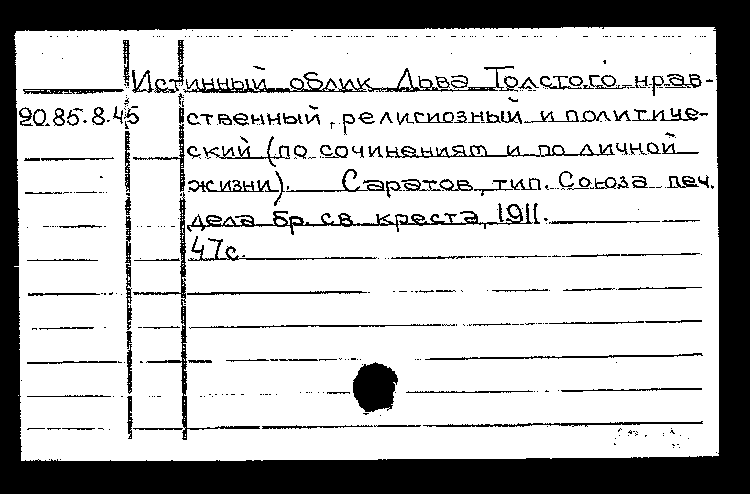 Истинный облик Льва Толстого нрав-
20.85.8.45 ственный, религиозный и политиче-
ский (по сочинениям и по личной
жизни). Саратов, тип. Союза печ.
дела бр. св. креста, 1911.
47с.